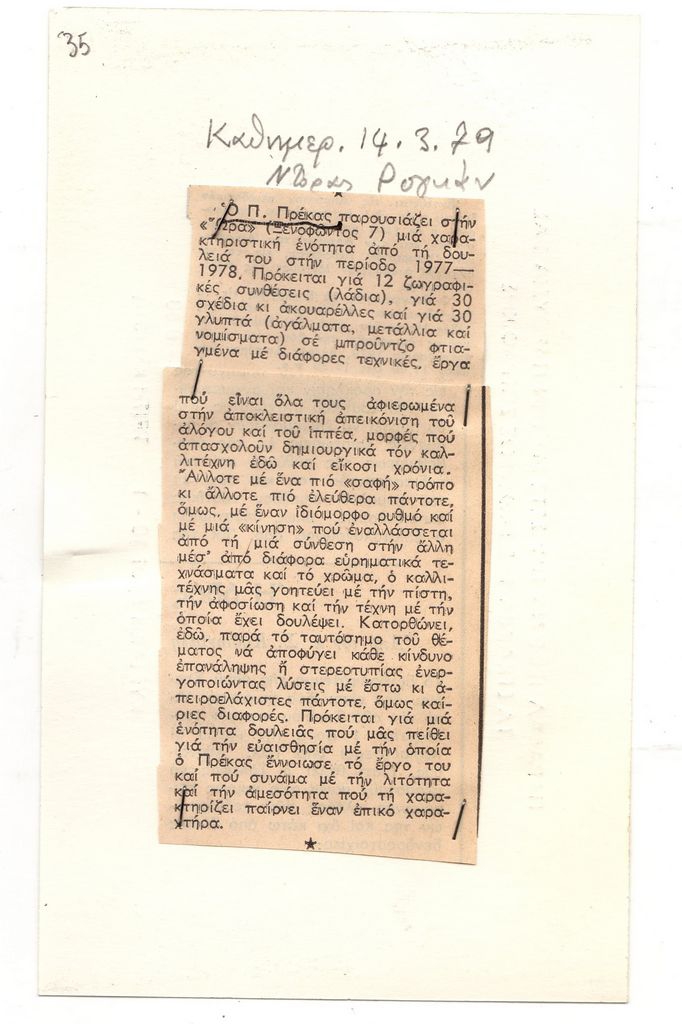 35
Καθημερ. 14.3.79
Ντόρας Ρογκάν
Ὁ Π. Πρέκας παρουσιάζει στήν
«Ὥρα» (Ξενοφῶντος 7) μιά χαρα-
κτηριστική ἑνότητα ἀπό τή δου-
λειά του στήν περίοδο 1977—
1978. Πρόκειται γιά 12 ζωγραφι-
κές συνθέσεις (λάδια), γιά 30
σχέδια κι ἀκουαρέλλες καί γιά 30
γλυπτά (ἀγάλματα, μετάλλια καί
νομίσματα) σέ μπροῦντζο φτια-
γμένα μέ διάφορες τεχνικές, ἔργα
πού εἶναι ὅλα τους ἀφιερωμένα
στήν ἀποκλειστική ἀπεικόνιση τοῦ
ἀλόγου καί τοῦ ἱππέα, μορφές πού
ἀπασχολοῦν δημιουργικά τόν καλ-
λιτέχνη ἐδῶ καί εἴκοσι χρόνια.
Ἄλλοτε μέ ἕνα πιό «σαφῆ» τρόπο
κι ἄλλοτε πιό ἐλεύθερα πάντοτε,
ὅμως, μέ ἕναν ἰδιόμορφο ρυθμό καί
μέ μιά «κίνηση» πού ἐναλλάσσεται
ἀπό τή μιά σύνθεση στήν ἄλλη
μέσ' ἀπό διάφορα εὑρηματικά τε-
χνάσματα καί τό χρῶμα, ὁ καλλι-
τέχνης μᾶς γοητεύει μέ τήν πίστη,
τήν ἀφοσίωση καί τήν τέχνη μέ τήν
ὁποία ἔχει δουλέψει. Κατορθώνει,
ἐδῶ, παρά τό ταυτόσημο τοῦ θέ-
ματος νά ἀποφύγει κάθε κίνδυνο
ἐπανάληψης ἤ στερεοτυπίας ἐνερ-
γοποιώντας λύσεις μέ ἔστω κι ἀ-
πειροελάχιστες πάντοτε, ὅμως καί-
ριες διαφορές. Πρόκειται γιά μιά
ἑνότητα δουλειᾶς πού μᾶς πείθει
γιά τήν εὐαισθησία μέ τήν ὁποία
ὁ Πρέκας ἔννοιωσε τό ἔργο του
καί πού συνάμα μέ τήν λιτότητα
καί τήν ἀμεσότητα πού τή χαρα-
κτηρίζει παίρνει ἕναν ἐπικό χαρα-
κτήρα.